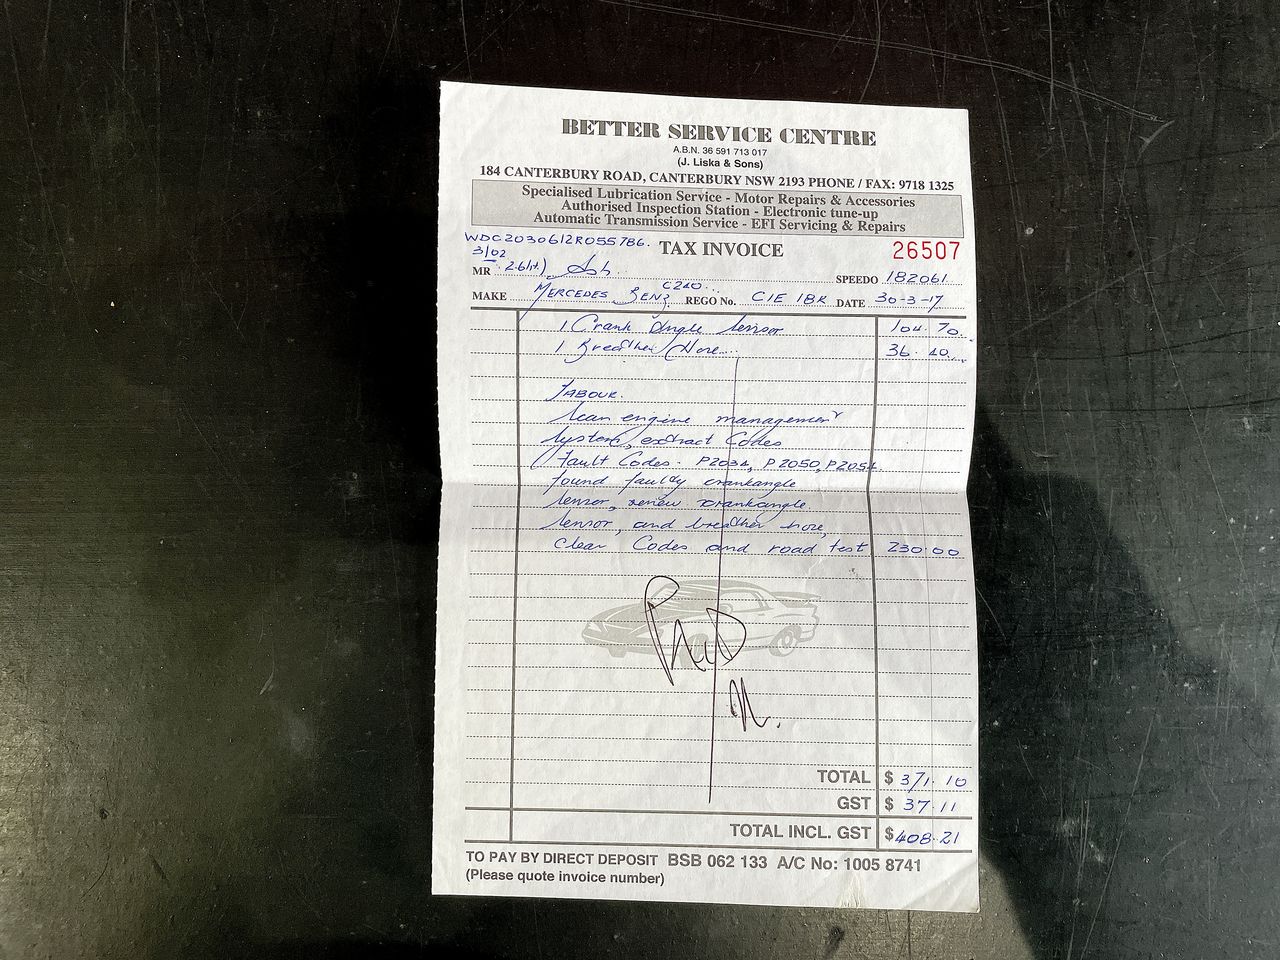 BETTER SERVICE CENTRE
A.B.N. 36 591 713 017
(J. Liska & Sons)
184 CANTERBURY ROAD, CANTERBURY NSW 2193 PHONE / FAX: 9718 1325
Specialised Lubrication Service - Motor Repairs & Accessories
Authorised Inspection Station - Electronic tune-up
Automatic Transmission Service - EFI Servicing & Repairs
WDC2030612R055786. TAX INVOICE 26507
3/02
MR 2.6lit) SPEEDO 182061
C240
MAKE MERCEDES BENZ REGO No. CIE 18K DATE 30-3-17
1 Crank Angle Sensor 104.70
1 Breather Hose 36.40
LABOUR.
Scan engine management
System, extract Codes
Fault Codes - P2034, P2050, P2054
found faulty crankangle
sensor, renew crankangle
sensor, and breather hose,
clear Codes and road test 230.00
TOTAL $ 371.10
GST $ 37.11
TOTAL INCL. GST $408.21
TO PAY BY DIRECT DEPOSIT BSB 062 133 A/C No: 1005 8741
(Please quote invoice number)